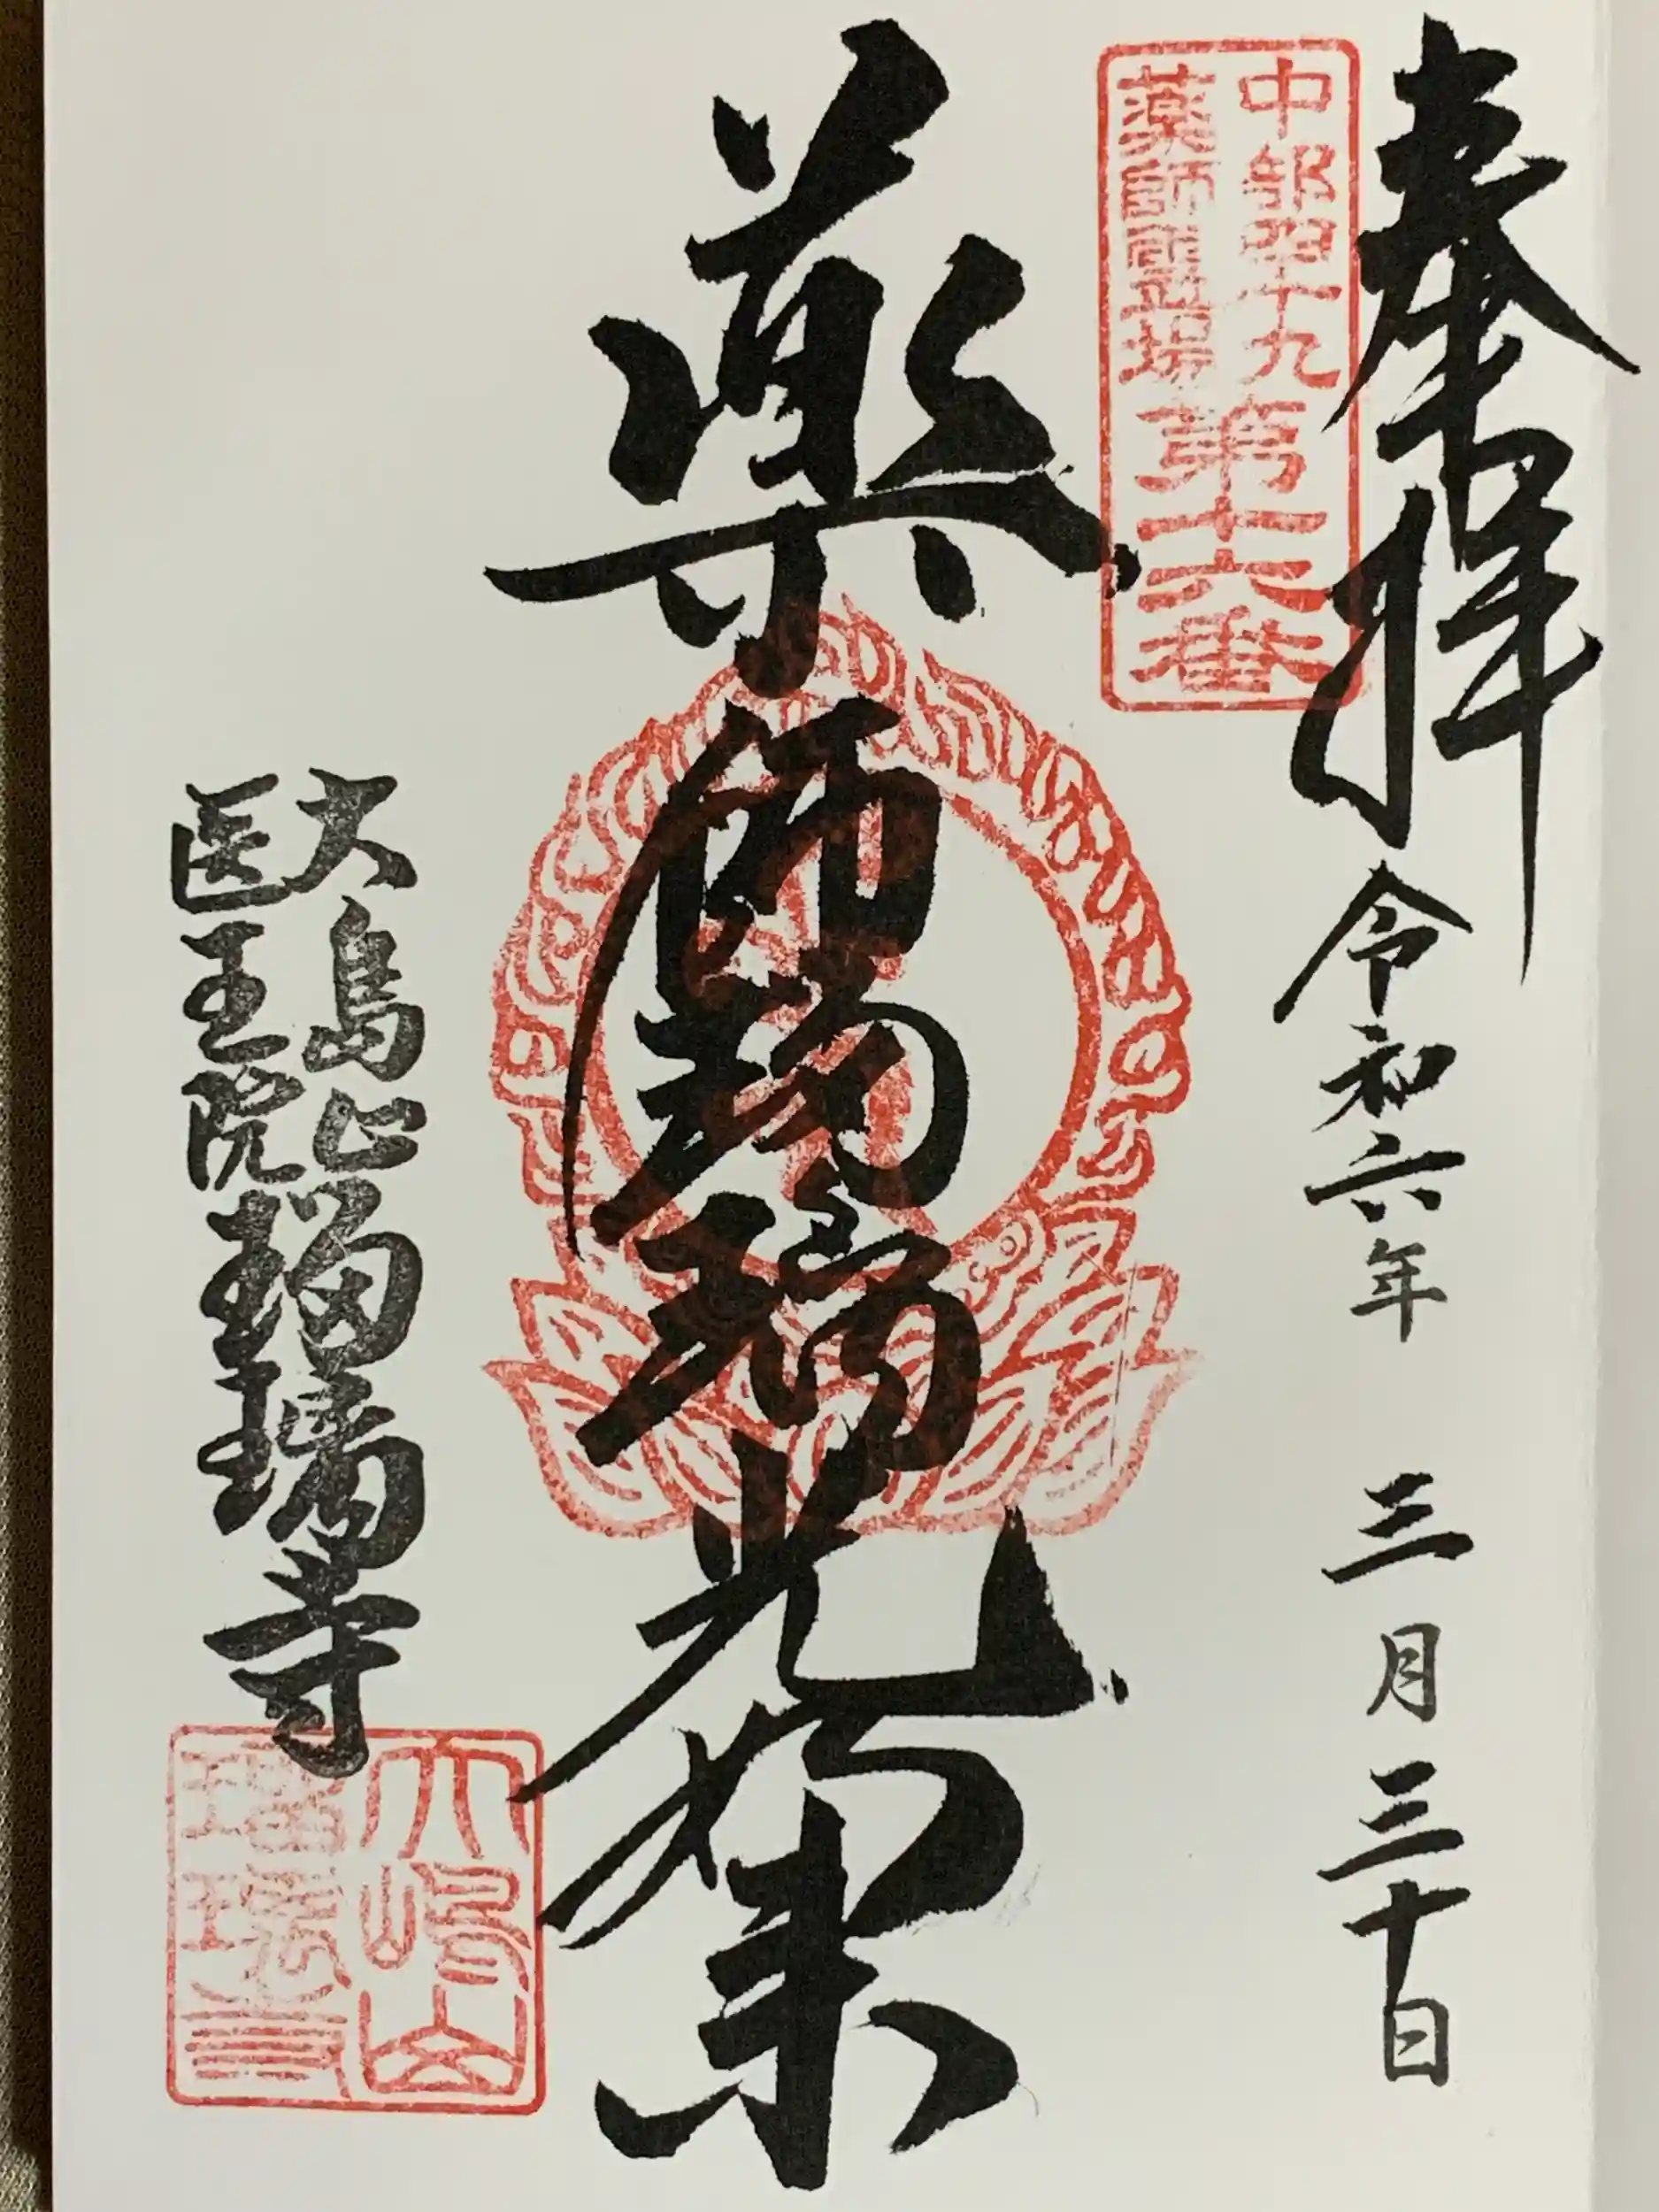 奉拝 令和六年 三月三十日
中部四十九
薬師霊場
第十六番
薬師瑠璃光如来
大島山
医王院
瑠璃寺
大嶋山
瑠璃寺